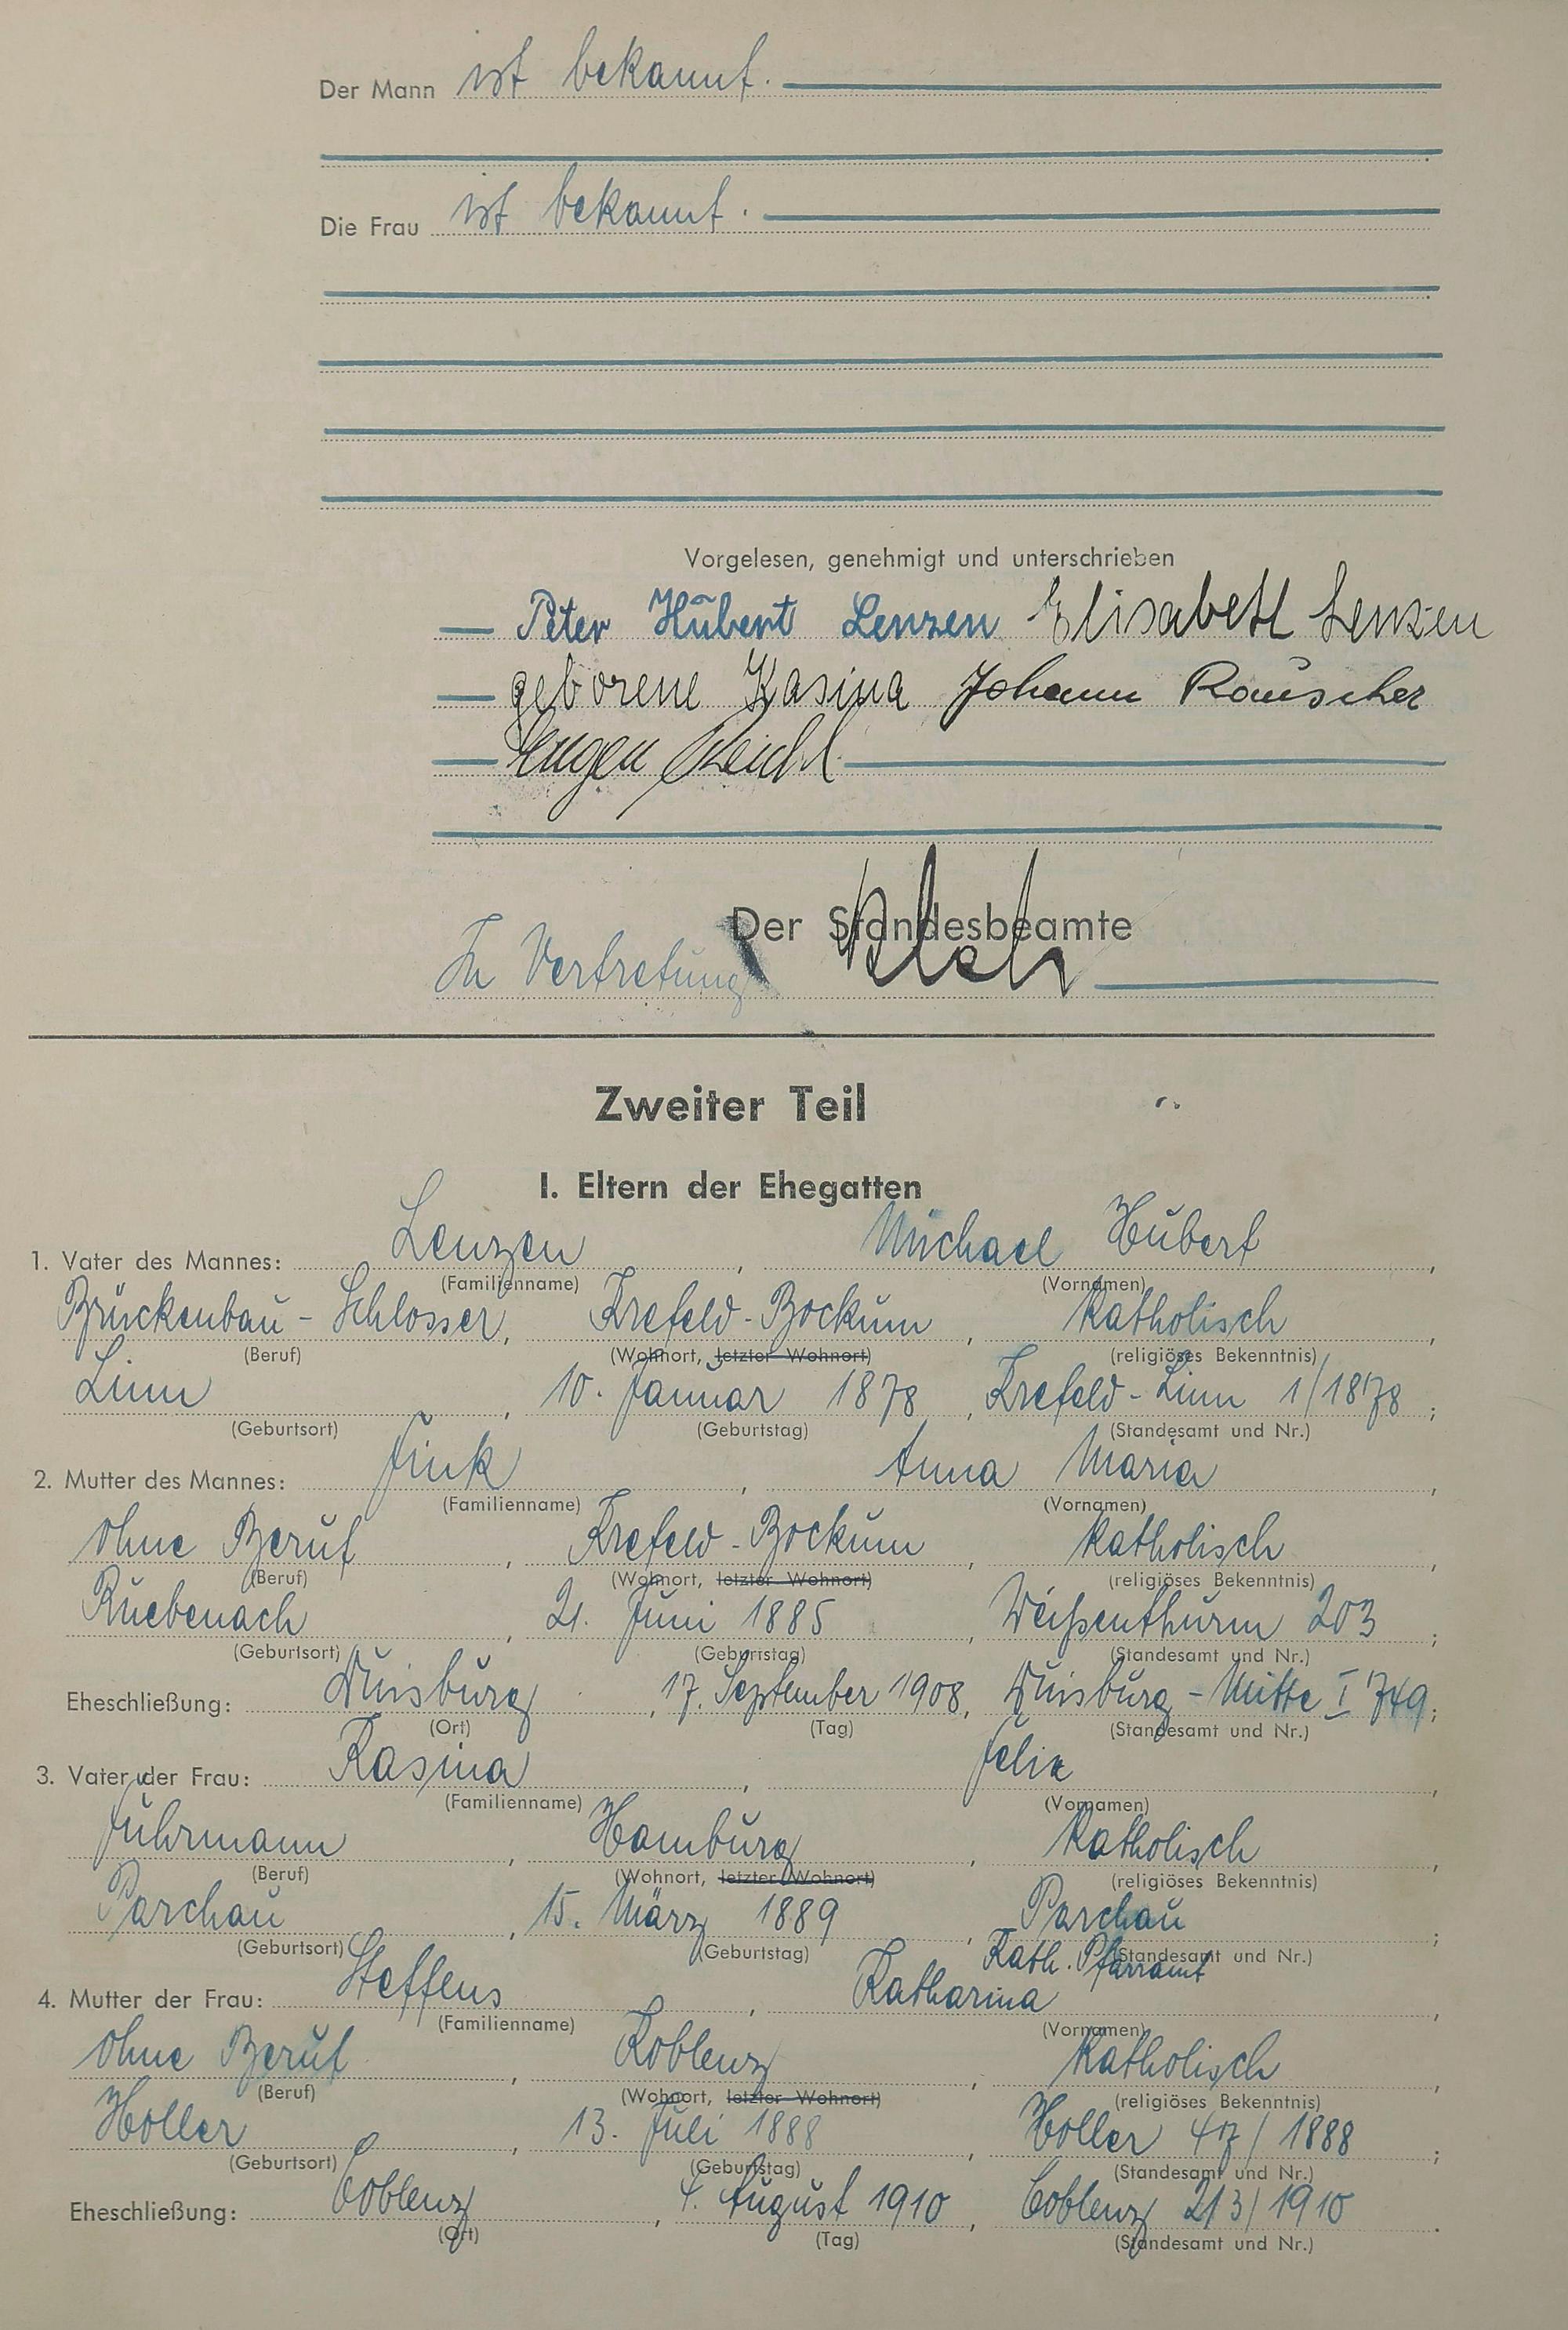 Der Mann ist bekannt.
Die Frau ist bekannt.
Vorgelesen, genehmigt und unterschrieben
Peter Hubert Lenzen Elisabeth Lenzen
geborene Kasina Johann Rauscher
Eugen
Der Standesbeamte
In Vertretung
Zweiter Teil
I. Eltern der Ehegatten
1. Vater des Mannes: Lenzen, Michael Hubert,
(Familienname) (Vornamen)
Brückenbau-Schlosser, Krefeld-Bockum, katholisch,
(Beruf) (Wohnort, letzter Wohnort) (religiöses Bekenntnis)
Linn, 10. Januar 1878, Krefeld-Linn 1/1878;
(Geburtsort) (Geburtstag) (Standesamt und Nr.)
2. Mutter des Mannes: Fink, Anna Maria,
(Familienname) (Vornamen)
ohne Beruf, Krefeld-Bockum, katholisch,
(Beruf) (Wohnort, letzter Wohnort) (religiöses Bekenntnis)
Ruebenach, 21. Juni 1885, Weißenthurm 203;
(Geburtsort) (Geburtstag) (Standesamt und Nr.)
Eheschließung: Duisburg, 17. September 1908, Duisburg-Mitte I 749;
(Ort) (Tag) (Standesamt und Nr.)
3. Vater der Frau: Kasina, Felix,
(Familienname) (Vornamen)
Fuhrmann, Hamburg, katholisch,
(Beruf) (Wohnort, letzter Wohnort) (religiöses Bekenntnis)
Parchau, 15. März 1889, Parchau;
(Geburtsort) (Geburtstag) (Standesamt und Nr.)
Kath. Pfarramt
4. Mutter der Frau: Steffens, Katharina,
(Familienname) (Vornamen)
ohne Beruf, Koblenz, katholisch,
(Beruf) (Wohnort, letzter Wohnort) (religiöses Bekenntnis)
Holler, 13. Juli 1888, Holler 47/1888;
(Geburtsort) (Geburtstag) (Standesamt und Nr.)
Eheschließung: Coblenz, 4. August 1910, Coblenz 213/1910.
(Ort) (Tag) (Standesamt und Nr.)